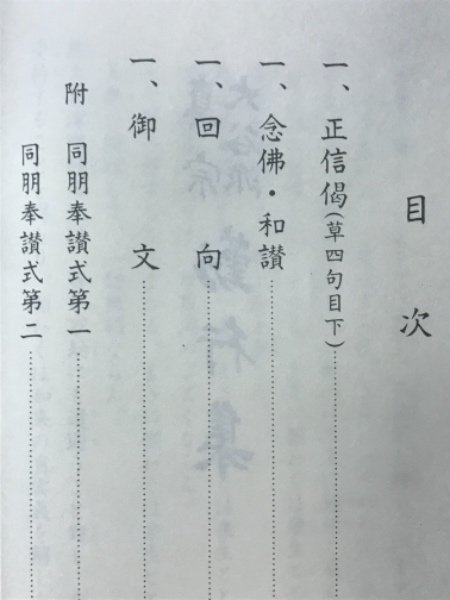 目次
一、正信偈(草四句目下)
一、念佛・和讃
一、回向
一、御文
附 同朋奉讃式第一
同朋奉讃式第二